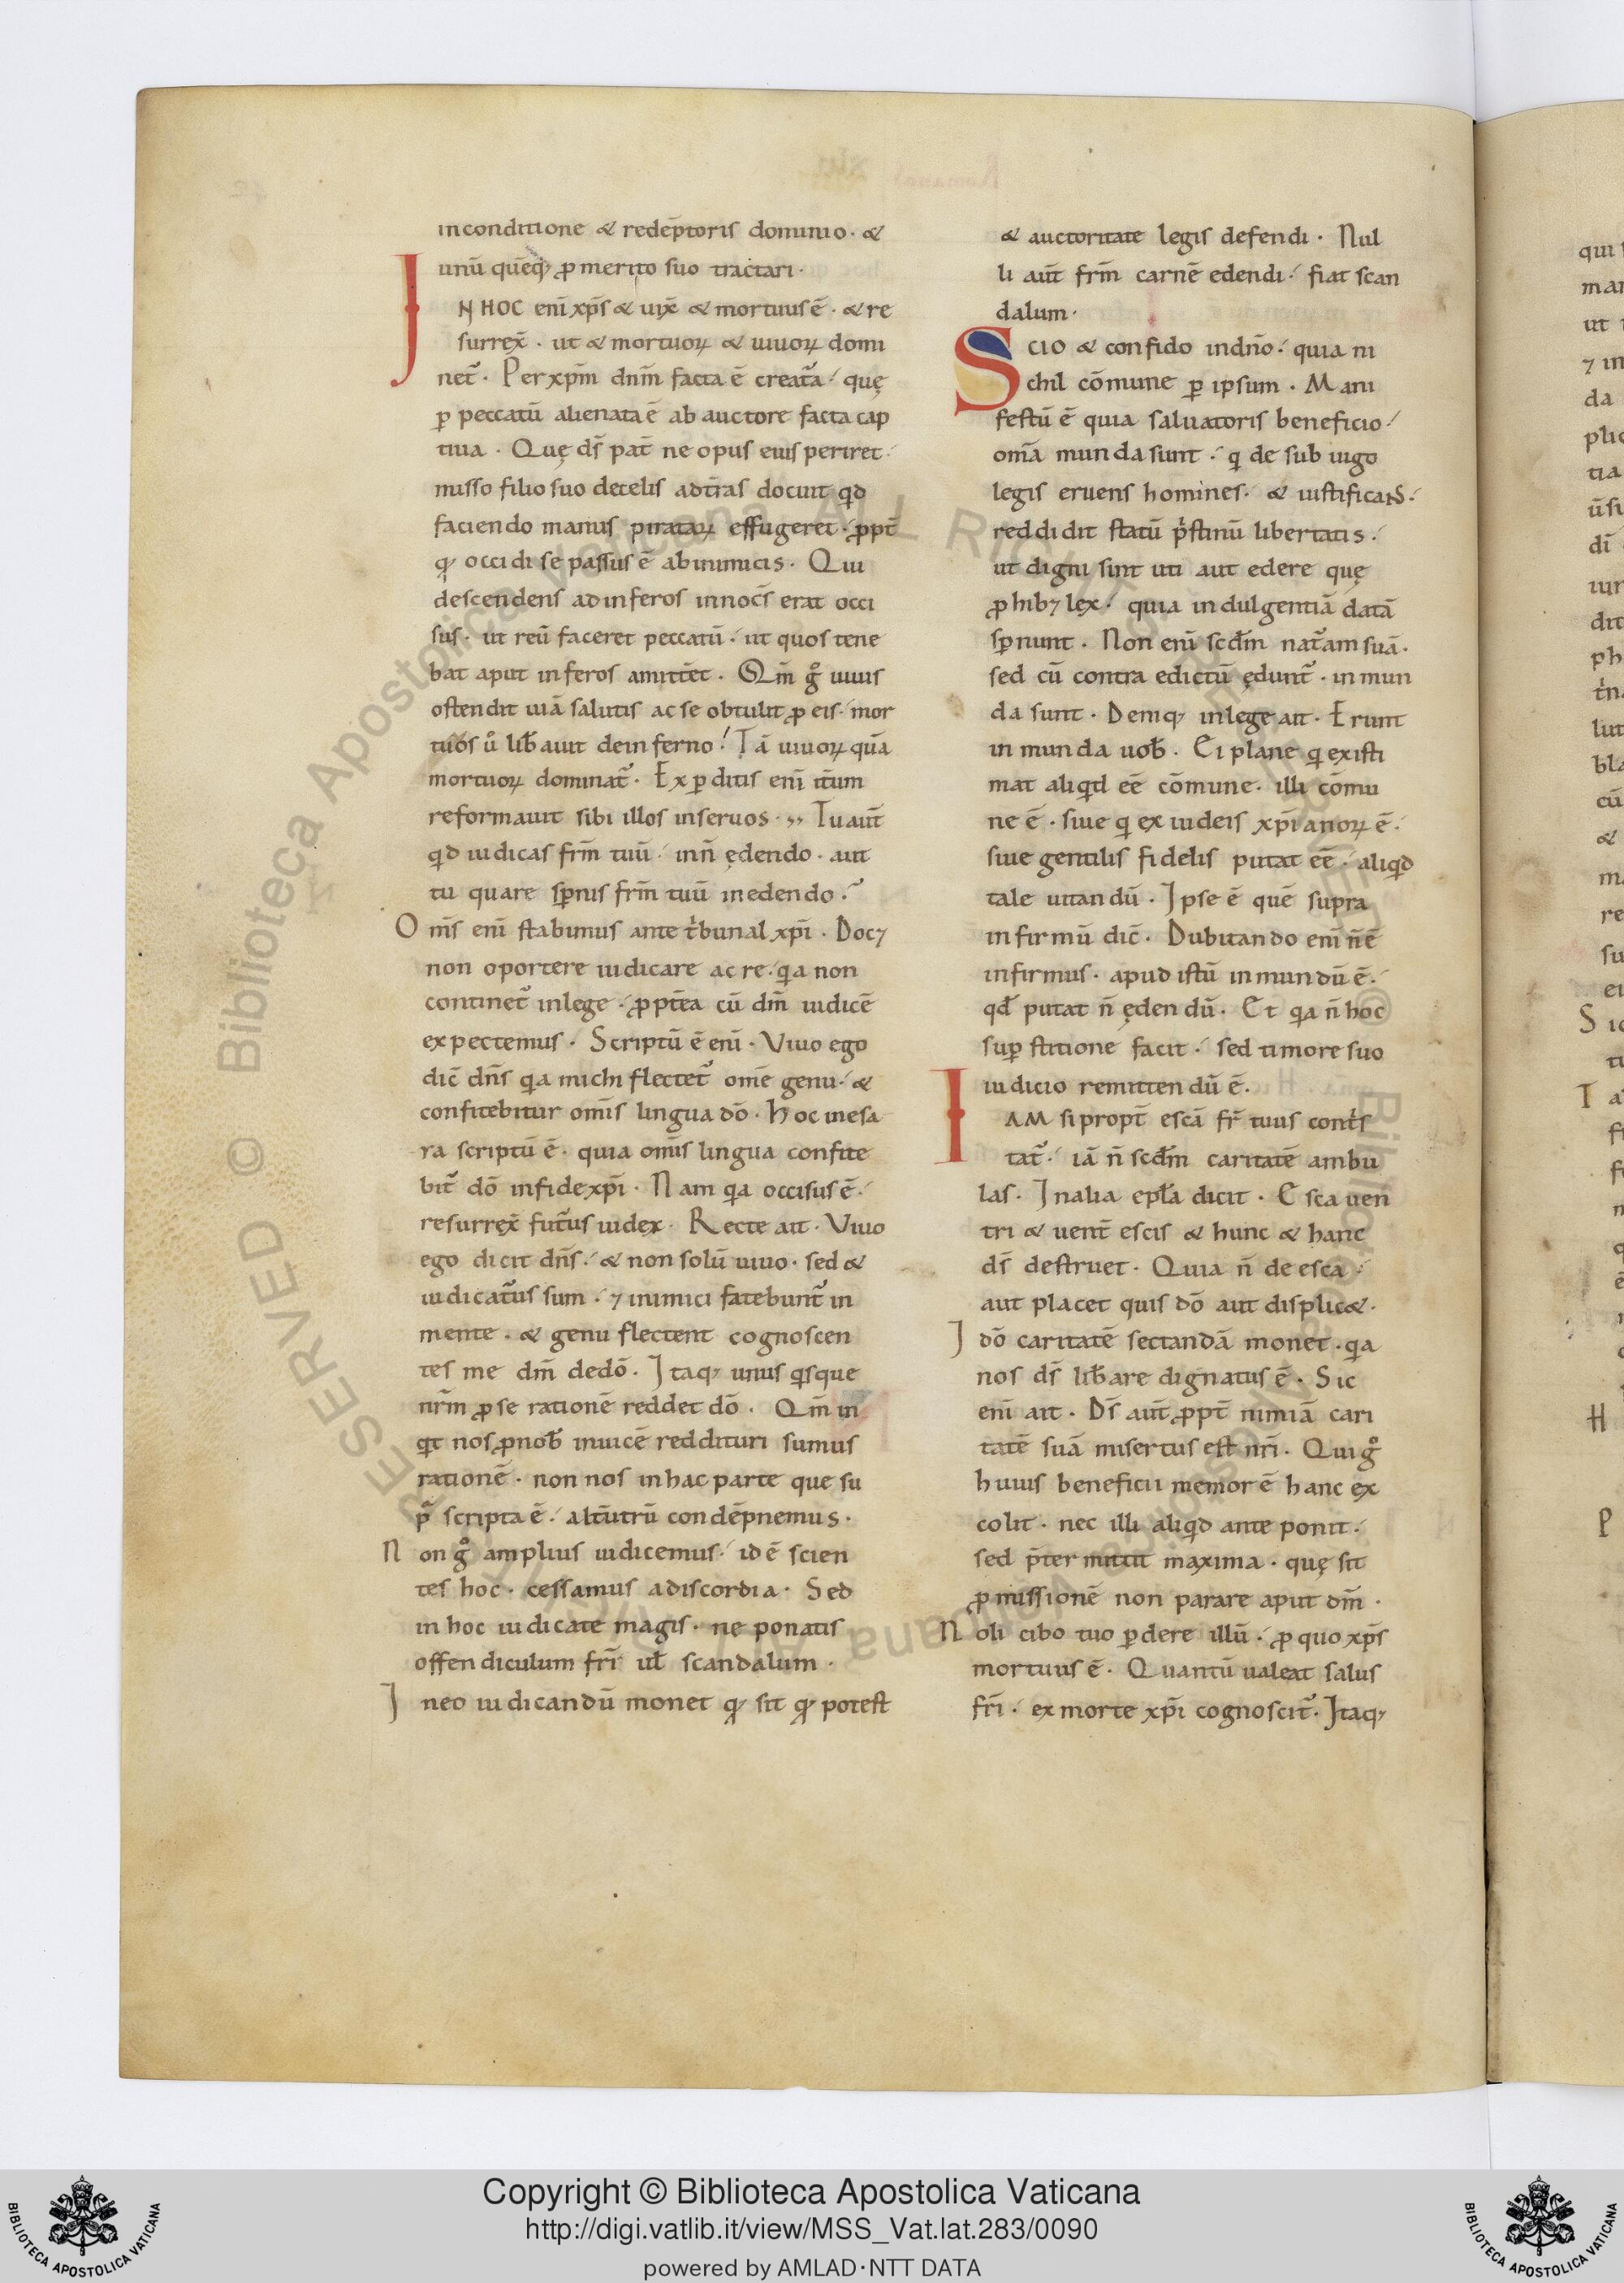 in conditione & redēptoris dominio · &
unū quēq; ꝓ merito suo tractari ·
IN HOC eni̅ xp̄s & uix̄ & mortuus ē · & re
surrex̄ · ut & mortuoꝝ & uiuoꝝ domi
net᷑ · Per xp̄m dn̄m facta ē creat᷑a · quę
ꝑ peccatū alienata ē ab auctore facta cap
tiua · Quę ds̄ pat̄ ne opus eius periret ·
misso filio suo decelis adt̄ras docuit qd̄
faciendo manus pirataꝝ effugeret · ꝓpt̄
q; occidi se passus ē ab inimicis · Qui
descendens ad inferos innoc̄s erat occi
sus · ut reū faceret peccatū · ut quos tene
bat aput inferos amitt̄et · Qm̄ g̊ uiuis
ostendit uiā salutis ac se obtulit ꝓ eis · mor
tuos ů lib̄auit de inferno ! Tā uiuoꝝ quā
mortuoꝝ dominat᷑ · Ex ꝑditis eni̅ it̄um
reformauit sibi illos in seruos ·,, Tu aut̄
qd̄ iudicas fr̄m tuū · in n̄ ędendo · aut
tu quare sꝑnis fr̄m tuū in edendo ·̃
Om̄s eni̅ stabimus ante tͥbunal xp̄i · Doc⁊
non oportere iudicare ac re · qa non
continet᷑ in lege · ꝓpt̄ea cū dm̄ iudicē
expectemus · Scriptū ē eni̅ · Viuo ego
dic̄ dn̄s qa michi flectet᷑ ome̅ genu · &
confitebitur om̄is lingua dō · Hoc in esa
ia scriptū ē · quia om̄is lingua confite
bit᷑ dō in fide xp̄i · Nam qa occisus ē ·
resurrex̄ fut᷑us iudex · Recte ait · Viuo
ego dicit dn̄s · & non solū uiuo · sed &
iudicat᷑us sum · ⁊ inimici fatebunt᷑ in
mente · & genu flectent cognoscen
tes me dm̄ de dō · Itaq; unus qsque
nr̄m ꝓ se rationē reddet dō · Qm̄ in
qt nos ꝓ nob̄ inuicē reddituri sumus
rationē · non nos in hac parte que su
pͣ scripta ē · alt̄utrū condēpnemus ·
Non g̊ amplius iudicemus · id ē scien
tes hoc · cessamus a discordia · Sed
in hoc iudicate magis · ne ponatis
offendiculum fr̄i ul̄ scandalum ·
In eo iudicandū monet q; sit q; potest
& auctoritate legis defendi · Nul
li aut̄ fr̄m carnē edendi · fiat scan
dalum ·
SCIO & confido in dn̄o · quia ni
chil cōmune ꝑ ipsum · Mani
festū ē quia saluatoris beneficio ·
om̄a munda sunt · q de sub iugo
legis eruens homines · & iustificans ·
reddidit statū pͥstinū libertatis ·
ut digni sint uti aut edere quę
ꝓhib⁊ lex · quia indulgentiā datā
sꝑnunt · Non eni̅ scd̄m nat᷑am suā ·
sed cū contra edictū ędunt᷑ · inmun
da sunt · Deniq; in lege ait · Erunt
inmunda uob̄ · Ei plane q existi
mat aliqd ēē cōmune · illi cōmu
ne ē · siue q ex iudeis xp̄ianoꝝ ē ·
siue gentilis fidelis putat ēē · aliqd
tale uitandū · Ipse ē quē supra
infirmū dic̄ · Dubitando eni̅ n̄ ē
infirmus · apud istū inmundū ē ·
qd̄ putat n̄ ędendū · Et qa n̄ hoc
suꝑstitione facit · sed timore suo
iudicio remittendū ē ·
IAM si propt̄ escā fr̄ tuus contͥs
tat᷑ · iā n̄ scd̄m caritatē ambu
las · In alia epl̄a dicit · Esca uen
tri & uent̄ escis & hunc & hanc
ds̄ destruet · Quia n̄ de esca ·
aut placet quis dō aut displic& ·
Idō caritatē sectandā monet · qa
nos ds̄ lib̄are dignatus ē · Sic
eni̅ ait · Ds̄ aut̄ ꝓpt̄ nimiā cari
tatē suā misertus est nr̄i · Qui g̊
huius beneficii memor ē hanc ex
colit · nec illi aliqd ante ponit ·
sed p̄termittit maxima · quę sit
ꝓmissionē non parare aput dm̄ ·
Noli cibo tuo ꝑdere illū · ꝓ quo xp̄s
mortuus ē · Quantū ualeat salus
fr̄i · ex morte xp̄i cognoscit᷑ · Itaq;
Copyright © Biblioteca Apostolica Vaticana
http://digi.vatlib.it/view/MSS_Vat.lat.283/0090
powered by AMLAD·NTT DATA
BIBLIOTECA APOSTOLICA VATICANA
BIBLIOTECA APOSTOLICA VATICANA